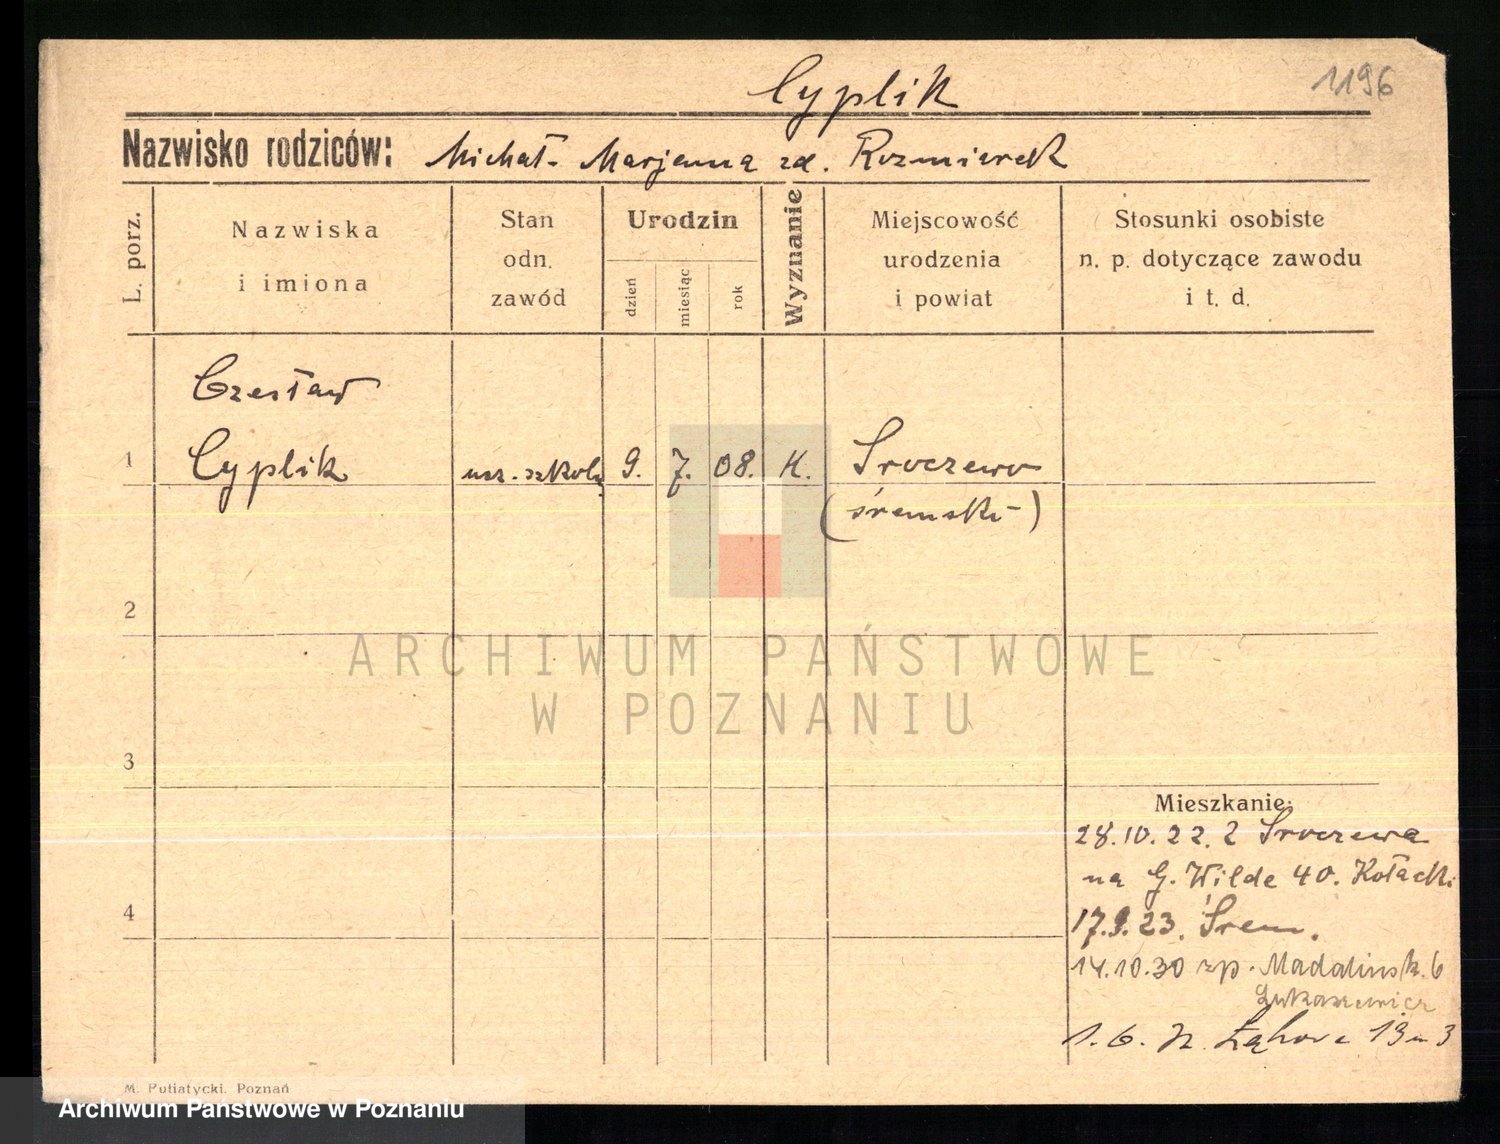 Cyplik
1196
Nazwisko rodziców: Michał - Marjanna zd. Rozmiarek
L. porz.
Nazwiska
i imiona
Stan
odn.
zawód
Urodzin
dzień
miesiąc
rok
Wyznanie
Miejscowość
urodzenia
i powiat
Stosunki osobiste
n. p. dotyczące zawodu
i t. d.
Czesław
1 Cyplik ucz. szkoły 9. 7. 08. K. Sroczewo
(śremski)
2
3
4
Mieszkanie:
28.10.22. z Sroczewa
na G. Wilde 40. Kołacki
17.9.23. Śrem.
14.10.30 zp. Madalińsk. 6
Łukaszewicz
1. 6. Łąkowa 19 3
M. Putiatycki, Poznań
ARCHIWUM PAŃSTWOWE
W POZNANIU
Archiwum Państwowe w Poznaniu